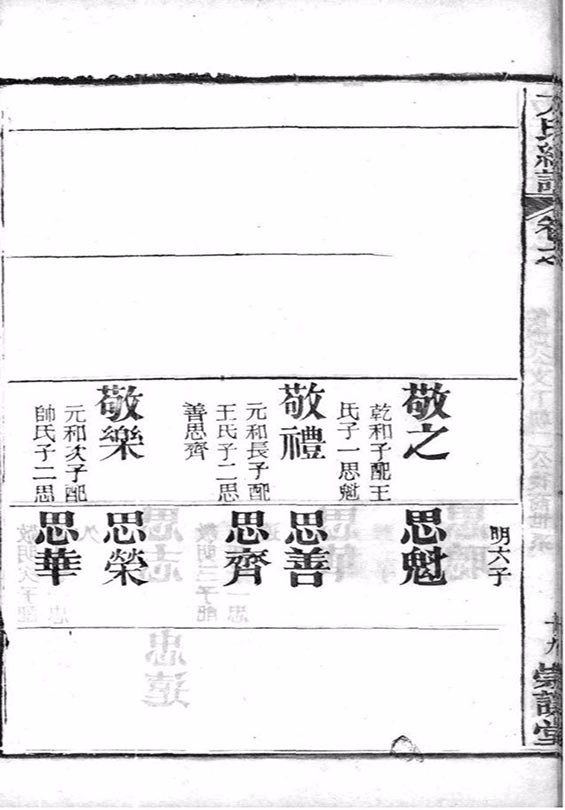 氏統譜
敬之
乾和子配王
氏子一思魁
敬禮
元和長子配
王氏子二思
善思齊
敬樂
元和次子配
帥氏子二思
明六子
思魁
思善
思齊
思榮
思華